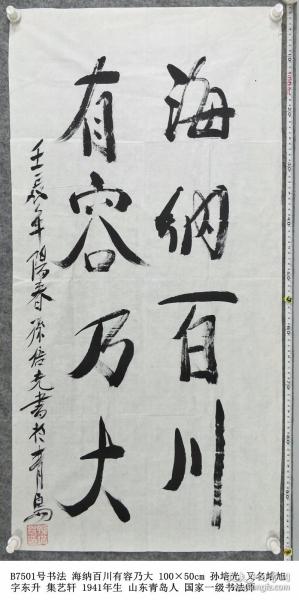 海纳百川
有容乃大
壬辰年陽春孫培光書於青島
B7501号书法 海纳百川有容乃大 100×50cm 孙培光 又名培旭
字东升 集艺轩 1941年生 山东青岛人 国家一级书法师